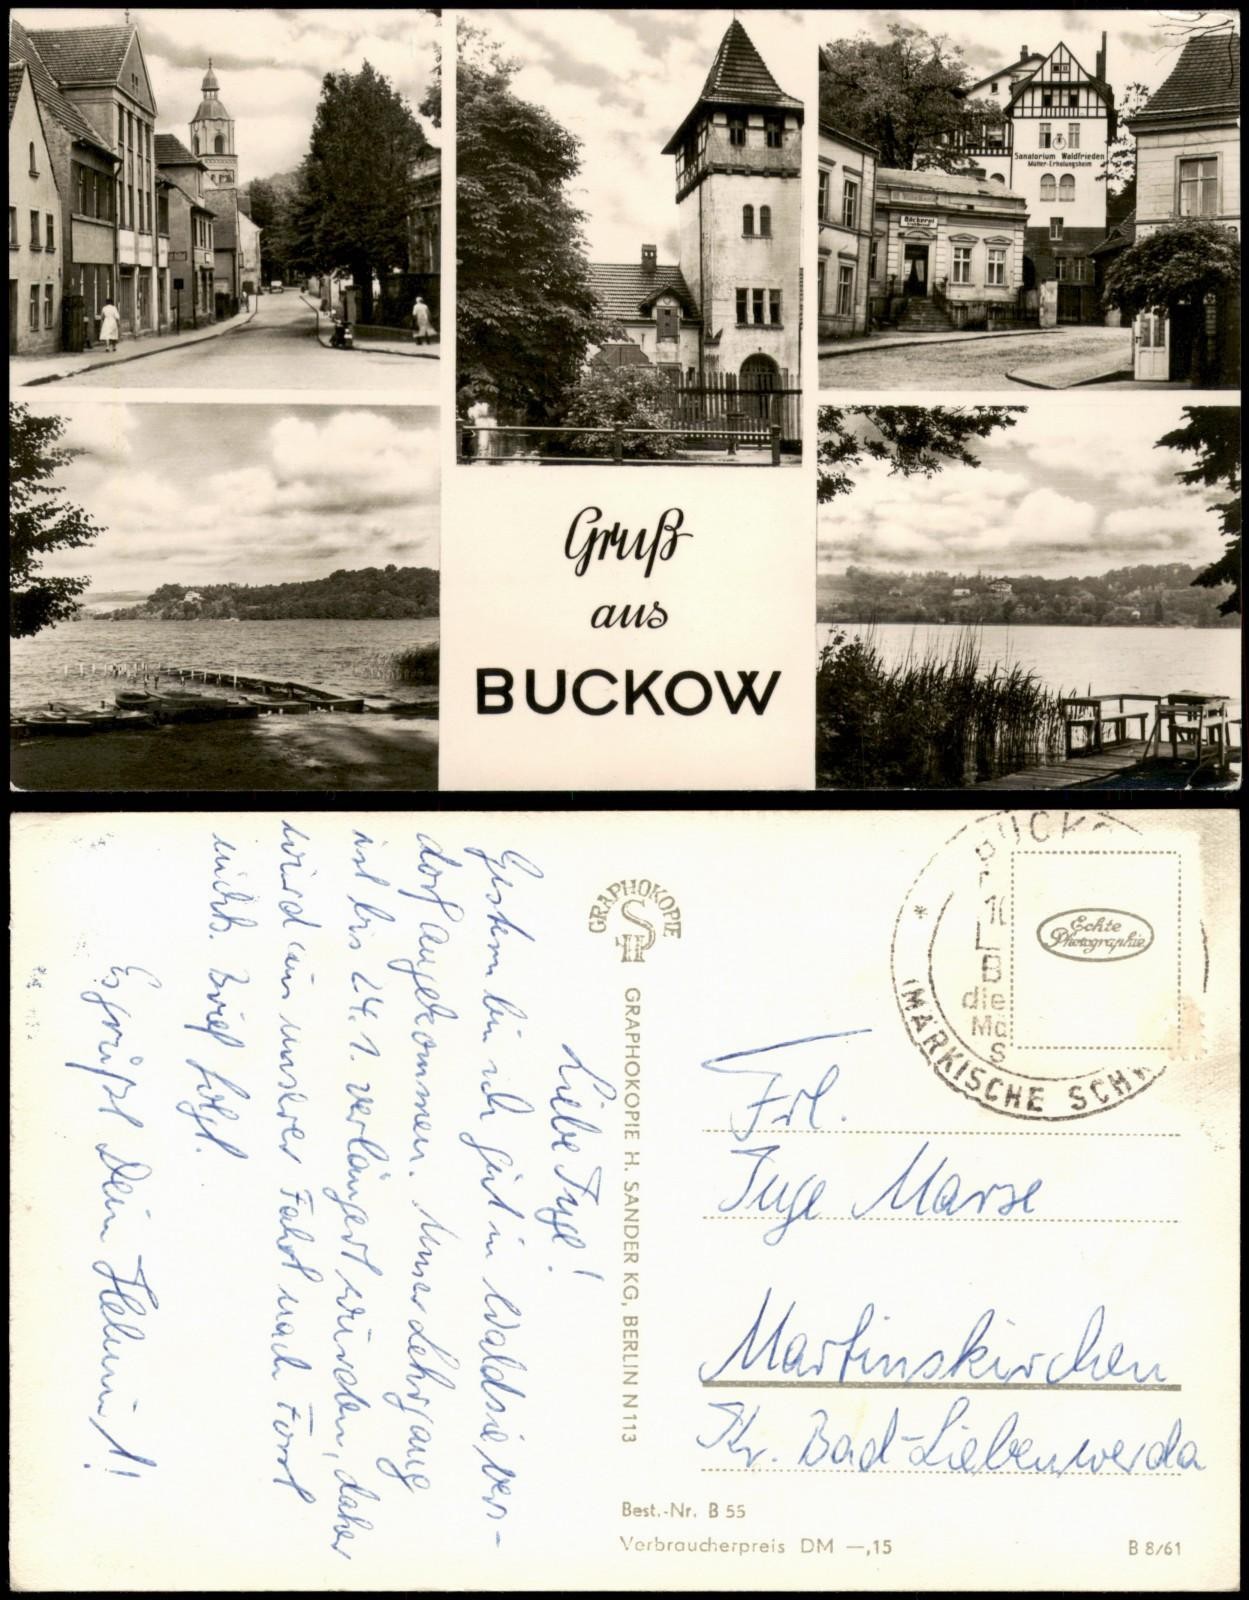 Sanatorium Waldfrieden
Mütter-Erholungsheim
Bäckerei
Gruß
aus
BUCKOW
Liebe Inge!
Gestern bin ich gut in Waldsievers-
dorf angekommen. Unser Lehrgang
ist bis 24.1. verlängert worden, daher
wird aus unserer Fahrt nach Forst
nichts. Brief folgt.
Es grüßt Dein Helmut!
GRAPHOKOPIE
HS
GRAPHOKOPIE H. SANDER KG, BERLIN N 113
BUCKO
(MÄRKISCHE SCHW
10
B
die
Mä
S
Echte
Photographie
Frl.
Inge Marse
Martinskirchen
Kr. Bad-Liebenwerda
Best.-Nr. B 55
Verbraucherpreis DM —,15
B 8/61